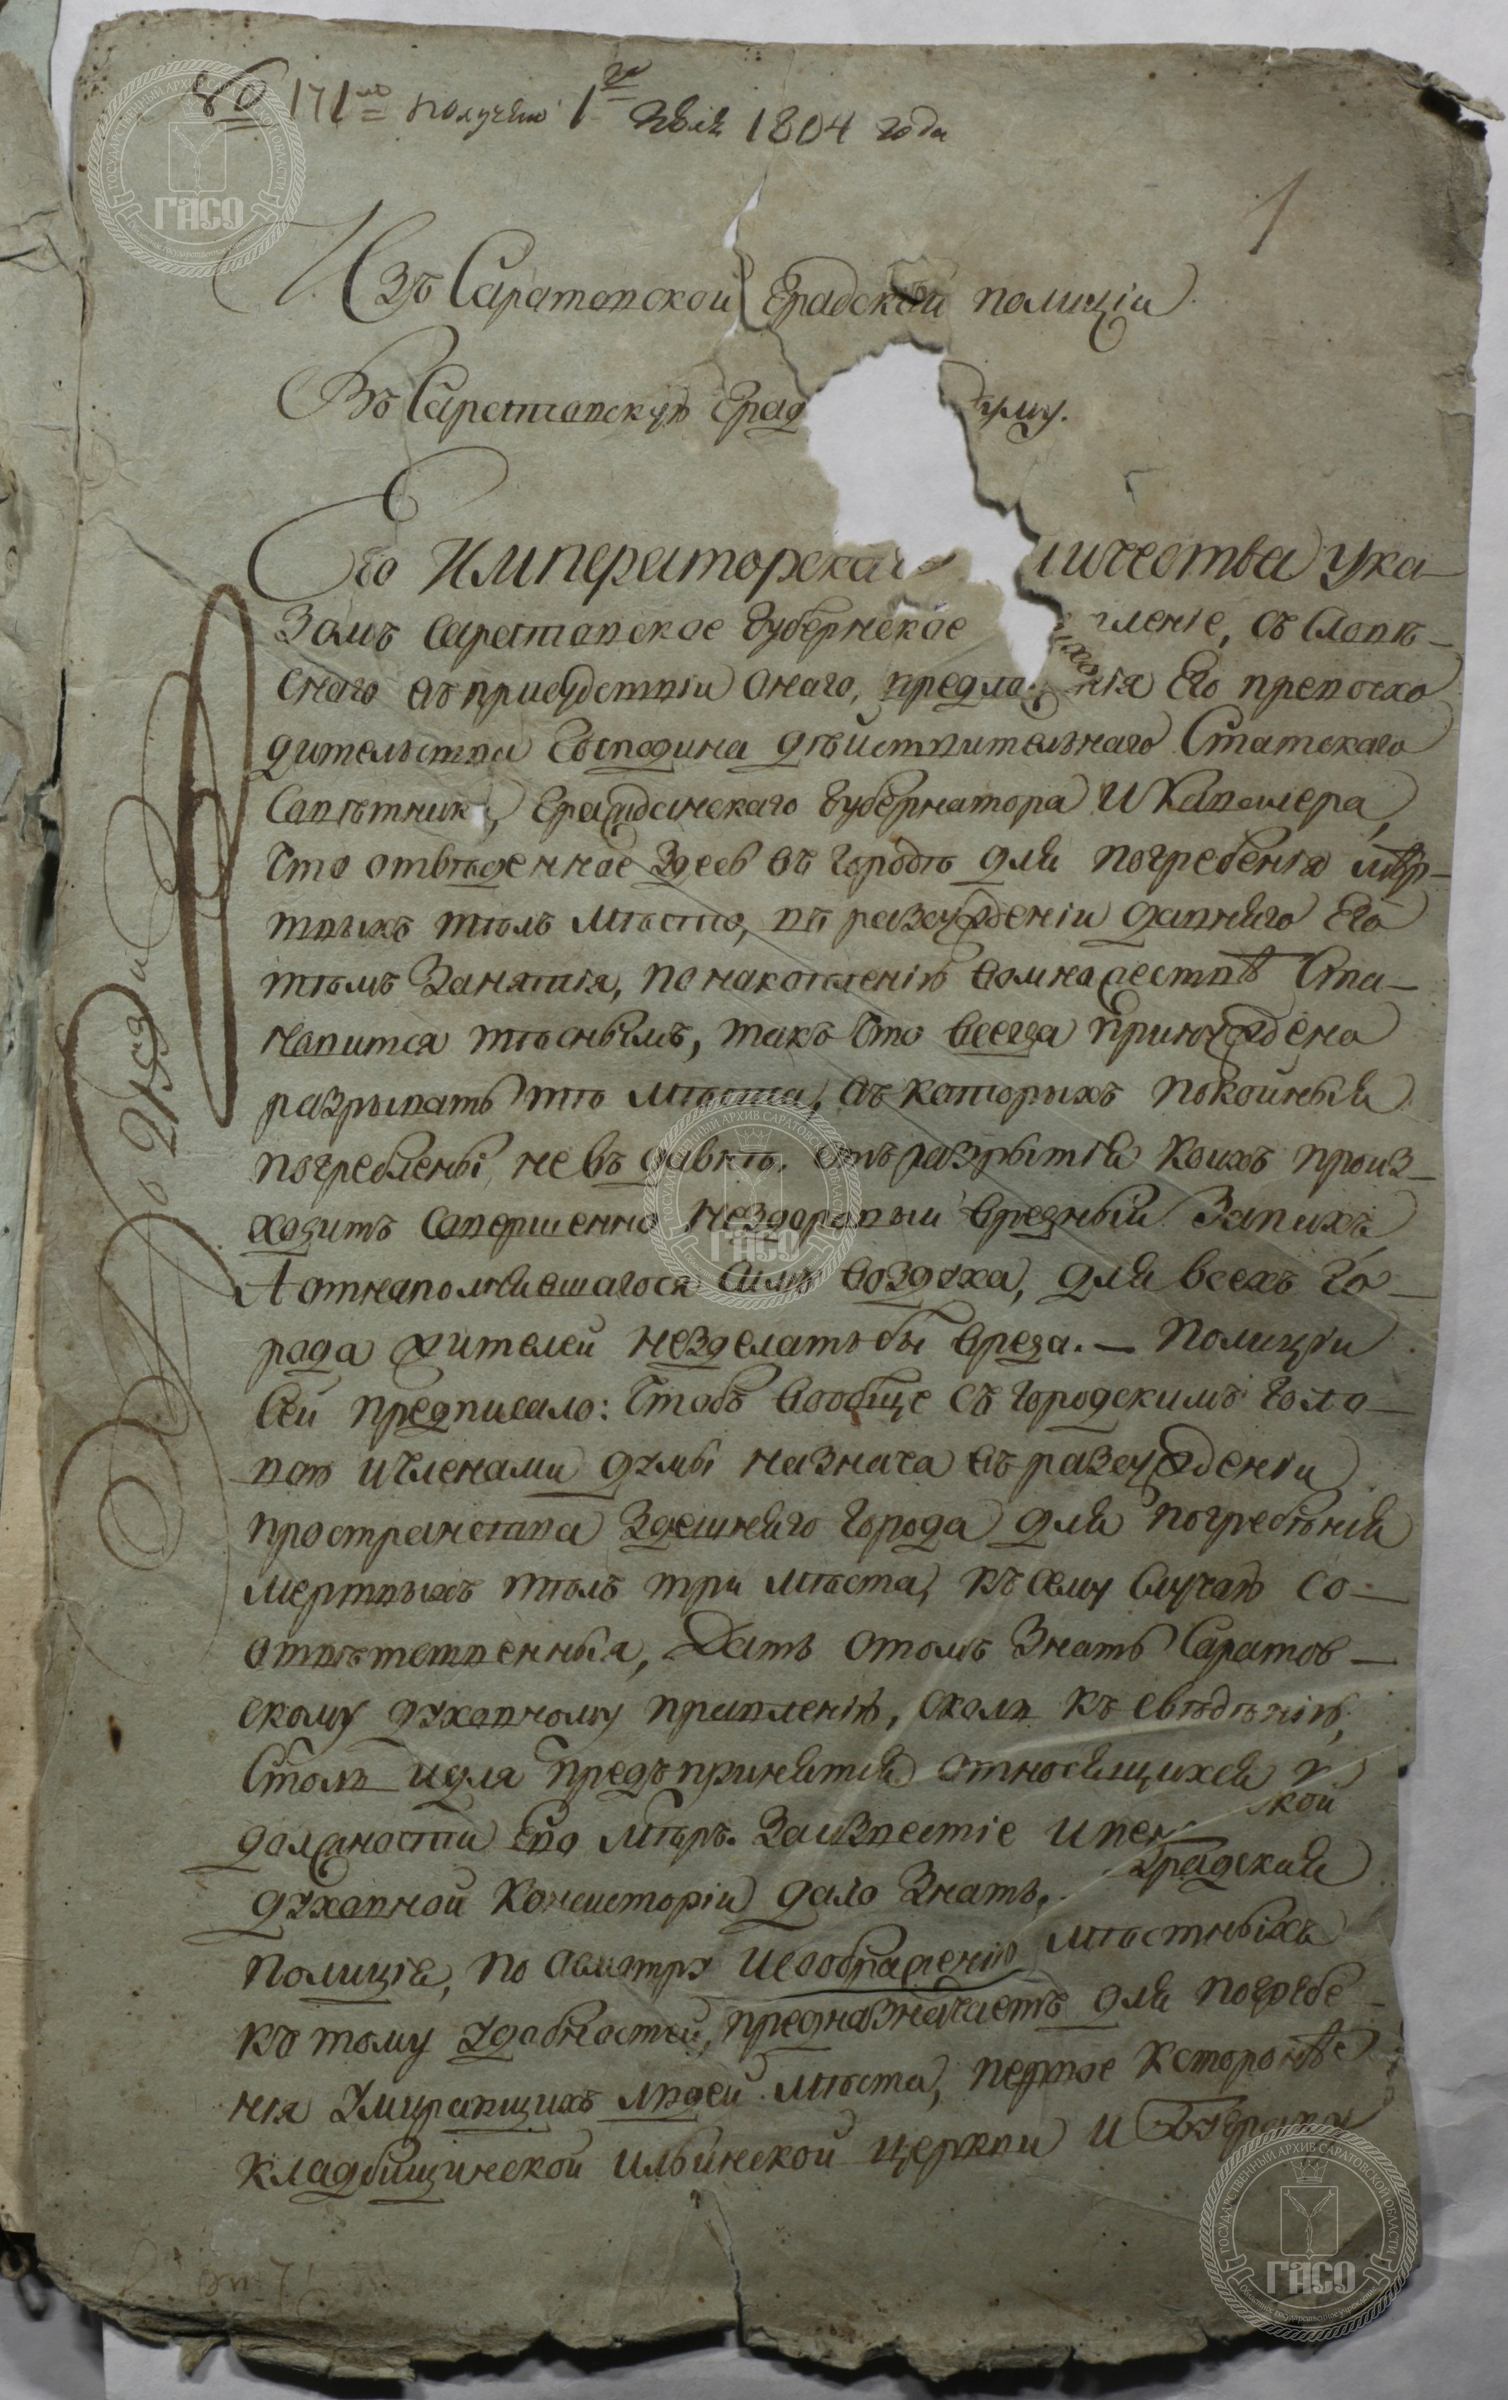 171 получено 1го Июля 1804 года
1
Изъ Саратовской Градской полиціи
Въ Саратовскую Град думу.
Его Императорскаго личества Ука-
зомъ Саратовское Губернское вленіе, съ Словѣ-
снаго въ присудствіи Онаго, предложенія Его превосхо
дительства Господина дѣйствительнаго Статскаго
Советника, Гражданскаго Губернатора и Кавалера,
Что отвѣденное здесь въ городѣ для погребенія мѣр-
твыхъ тѣлъ мѣсто, въ разсужденіи давняго Его
тѣмъ Занятія, по накопленію вомножествѣ Ста-
навится тѣснымъ, такъ Что всегда принуждено
разрывать тѣ мѣста, въ которыхъ покойныя
погребены не въ давнѣ. отъ разрытія коихъ произ-
ходитъ Совершенно нездоровыи вредный Запахъ
А отнаполнившагося симъ воздуха, для всехъ Го-
рода жителей незделатьбы вреда. — Полиціи
Сей предписало: Чтобъ вообще съ городскимъ Голо-
вою ичленами думы назнача въ разсужденіи
пространства Здешняго Города для погребѣнія
мертвыхъ тѣлъ три мѣста, къ сему Случаю со-
отвѣтственныя, Дать отомъ Знать Саратов-
скому духовному правленію, сколь къ свѣдѣнію,
Столь идля предъпринятія относящихся
должности Его мѣръ. Заизвестіе ипен ской
духовной Консисторіи дало Знать. Градская
Полиція, по осмотру исоображенію мѣстныхъ
къ тому удобностей, предназначаетъ для погребе
нія умирающихъ людей мѣста, первое Ксторонѣ
Кладбищинской ильинской церкви и Буерака
ГОСУДАРСТВЕННЫЙ АРХИВ САРАТОВСКОЙ ОБЛАСТИ
ГАСО